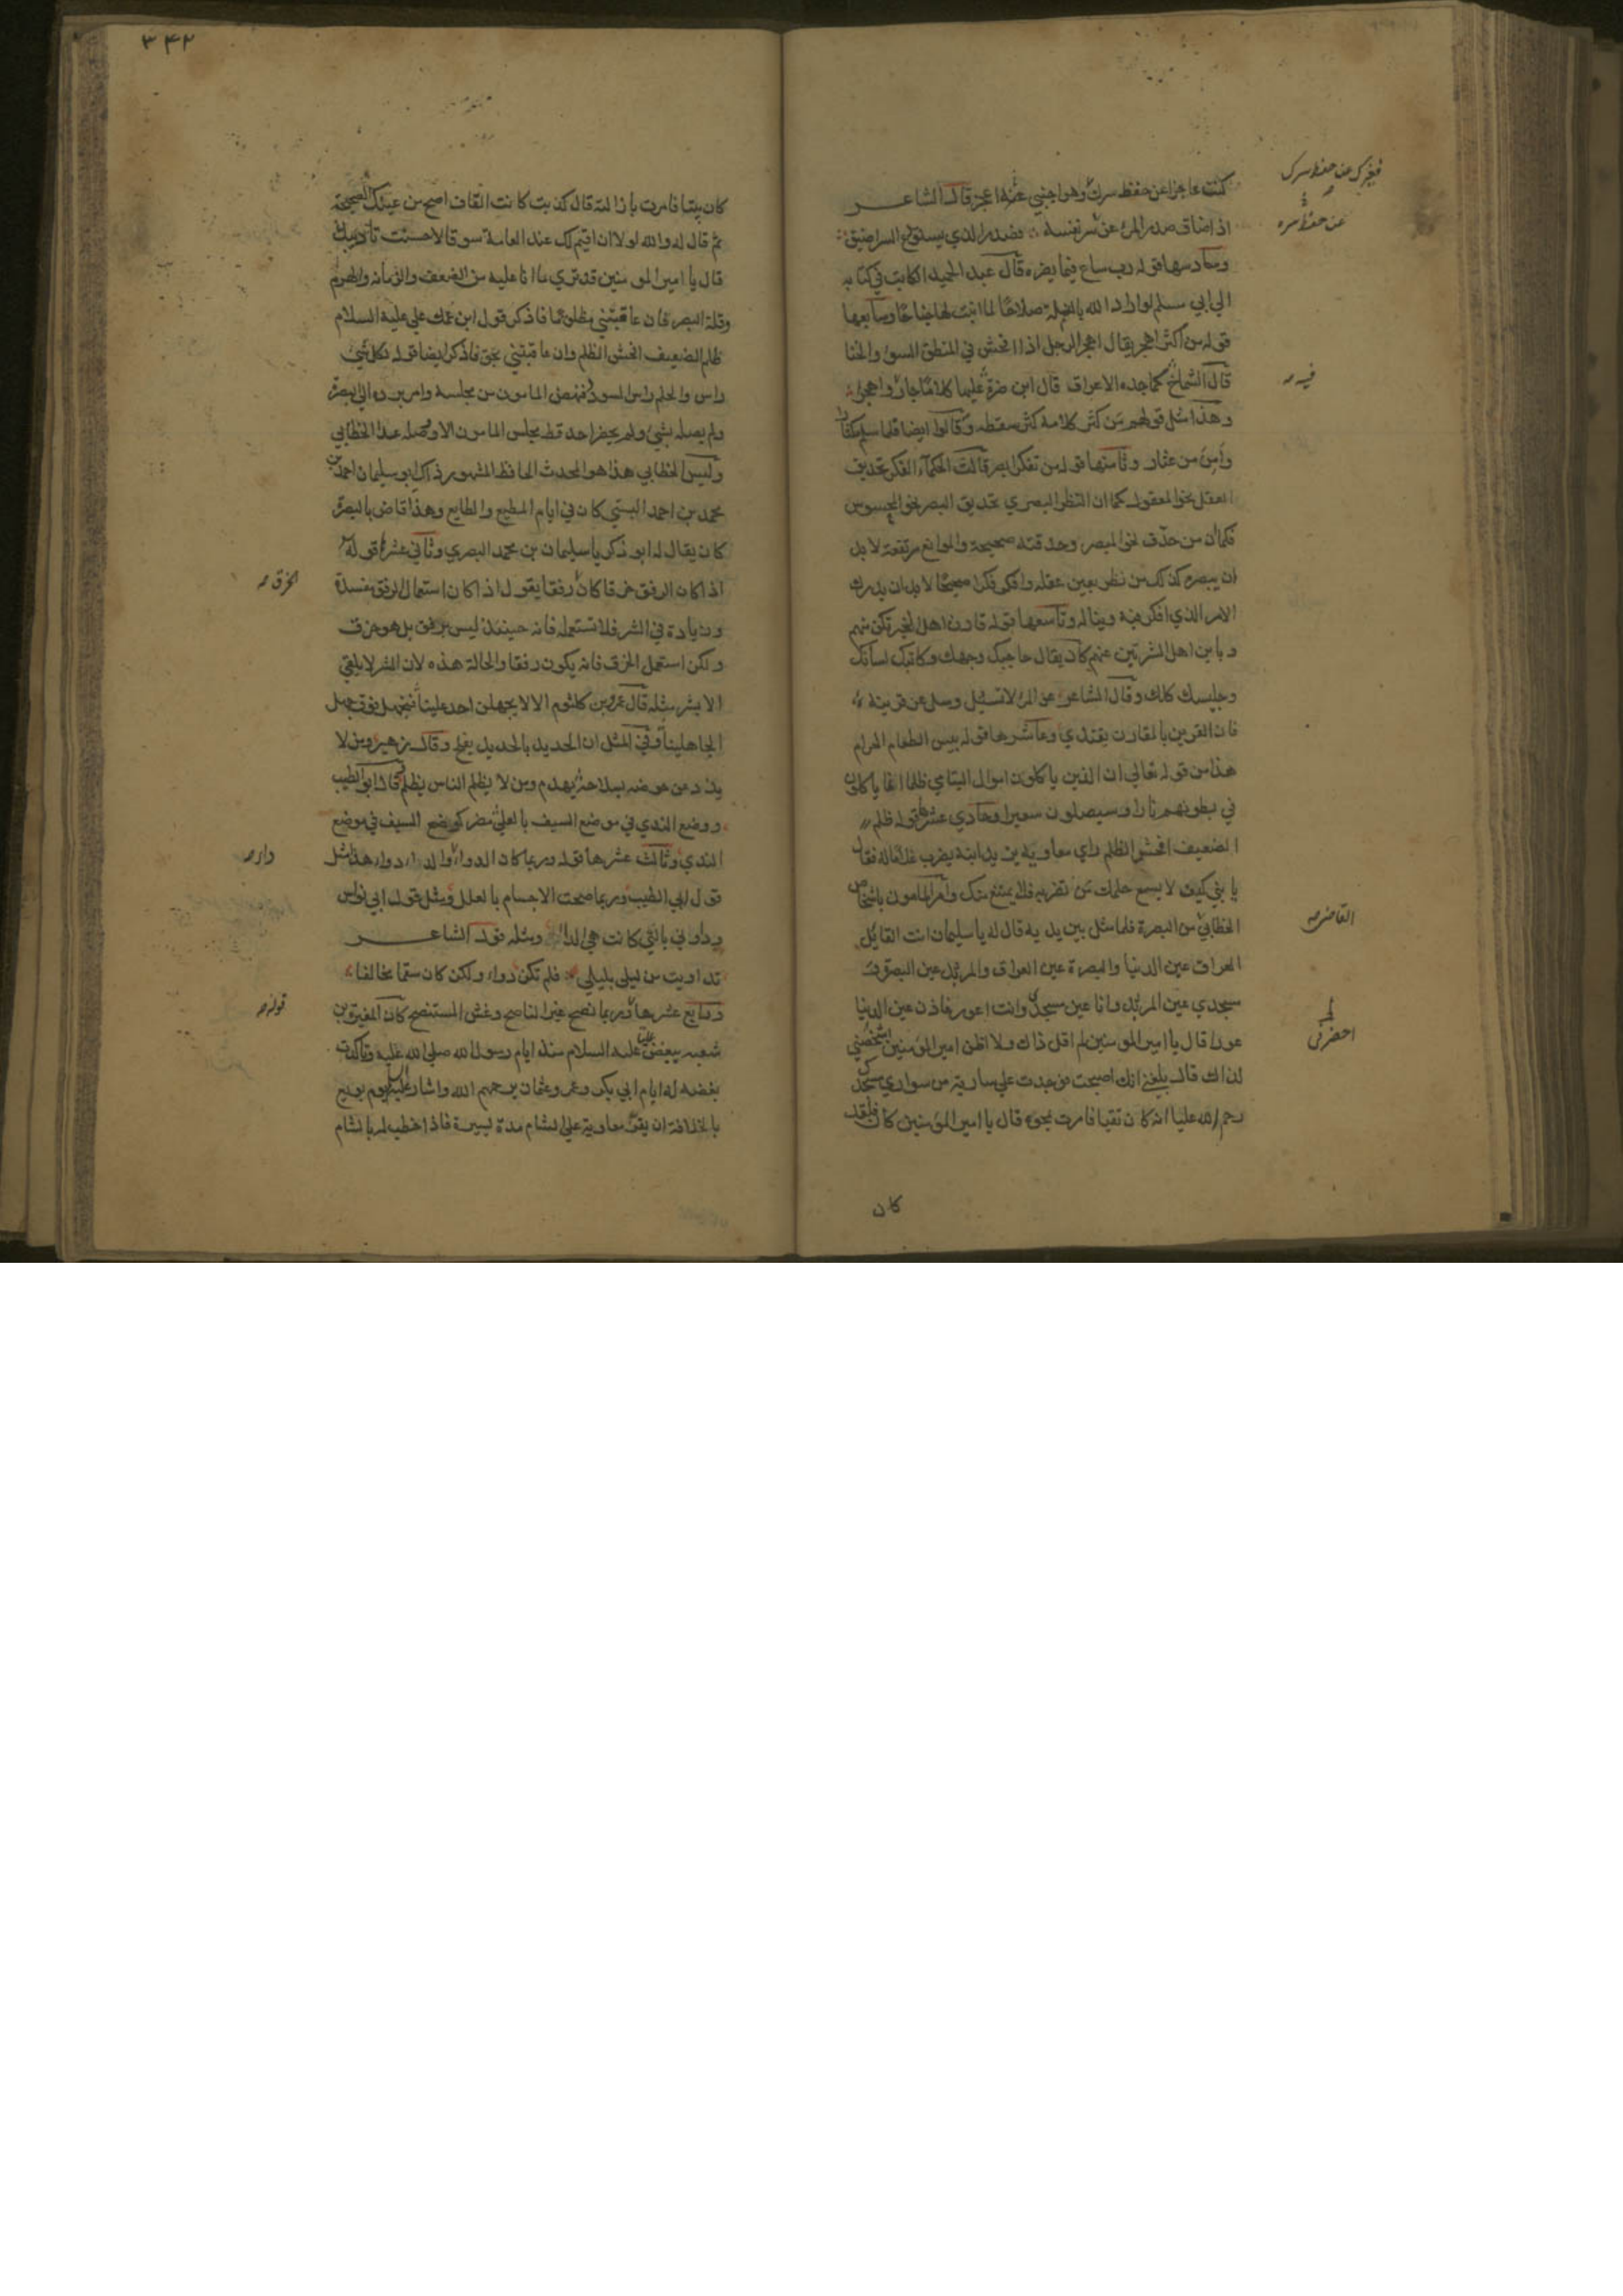 كنت عاجزا عن حفظ سرك وهو اجنبي عنه اعجز قال الشاعر
اذا ضاق صدر المرء عن سر نفسه فصدر الذي يستودع السر اضيق
وسادسها قوله رب ساع فيما يضره قال عبد الحميد الكاتب في كتابه
الي ابي مسلم لو اراد الله بالنملة صلاحا لما انبت لها جناحا وسابعها
قوله من اكثر اهجر يقال اهجر الرجل اذا افحش في المنطق السوء والخنا
قال الشماخ كماجدة الاعراق قال ابن ضرة عليها كلاما جار واهجرا
وهذا مثل قولهم من كثر كلامه كثر سقطه وقالوا ايضا قلما سلم مكثار
وامن من عثار وثامنها قوله من تفكر ابصر قالت الحكماء الفكر تحديق
العقل نحو المعقول كما ان النظر البصري تحديق البصر نحو المحسوس
فكما ان من حدق نحو المبصر وحدقته صحيحة والموانع مرتفعة لا بد
ان يبصره كذلك من نظر بعين عقله وافكر فكرا صحيحا لا بد ان يدرك
الامر الذي افكر فيه ويناله وتاسعها قوله قارن اهل الخير تكن منهم
وباين اهل الشر تبن عنهم كان يقال حاجبك وجهك وكاتبك لسانك
وجليسك كلك وقال الشاعر عن المرء لا تسئل وسل عن قرينه
فان القرين بالمقارن يقتدي وعاشرها قوله بيس الطعام الحرام
هذا من قوله تعالي ان الذين ياكلون اموال اليتامي ظلما انما ياكلون
في بطونهم نارا وسيصلون سعيرا وحادي عشرها قوله ظلم
الضعيف افحش الظلم راي معاوية بن يد ابنه يضرب غلاما له فقال
يا بني كيف لا يسع حلمك من تضربه فلا يمتنع منك وامر المامون باشخاص
الخطابي من البصرة فلما مثل بين يديه قال له يا سليمان انت القايل
العراق عين الدنيا والبصرة عين العراق والمربد عين البصرة و
مسجدي عين المربد وانا عين مسجدي وانت اعور فاذن عين الدنيا
عورا قال يا امير المومنين لم اقل ذاك ولا اظن امير المومنين اشخصني
لذلك قال بلغني انك اصبحت فوجدت علي سارية من سواري مسجدك
رحم الله عليا انه كان تقيا فامرت بمحوه قال يا امير المومنين كان فلقد
كان
فيعجزك عن حفظ سرك
عن حفظ سره
فيه
القاضي
لم
احضرتني
٣٤٢
كان بيتا فامرت بازالته قال كذبت كانت القاف اصح من عينك الصحيحة
ثم قال له والله لولا ان اقيم لك عند العامة سوقا لاحسنت تاديبك
قال يا امير المومنين قد تري ما انا عليه من الضعف والزمانة والهرم
وقلة البصر فان عاقبتني مظلوما فاذكر قول ابن عمك علي عليه السلام
ظلم الضعيف افحش الظلم وان عاقبتني بحق فاذكر ايضا قوله لكل شي
راس والحلم راس السودد فنهض المامون من مجلسه وامر برده الي البصرة
ولم يصله بشي ولم يحضر احد قط مجلس المامون الا وصله عدا الخطابي
وليس الخطابي هذا هو المحدث الحافظ المشهور ذاك ابو سليمان احمد بن
محمد بن احمد البستي كان في ايام المطيع والطايع وهذا قاض بالبصرة
كان يقال له ابو ذكريا سليمان بن محمد البصري وثاني عشرها قوله
اذا كان الرفق خرقا كان رفقا يقول اذا كان استعمال الرفق مفسدة
وزيادة في الشر فلا تستعمله فانه حينئذ ليس برفق بل هو خرق
ولكن استعمل الخرق فانه يكون رفقا والحالة هذه لان الشر لا يلقي
الا بشر مثله قال عمرو بن كلثوم الا لا يجهلن احد علينا فنجهل فوق جهل
الجاهلينا وفي المثل ان الحديد بالحديد يفلح وقال زهير ومن لا
يذد عن حوضه بسلاحه يهدم ومن لا يظلم الناس يظلم وقال ابو الطيب
ووضع الندي في موضع السيف بالعلي مضر كوضع السيف في موضع
الندي وثالث عشرها قوله وربما كان الدواء داء والداء دواء هذا مثل
قول ابي الطيب وربما صحت الاجسام بالعلل ومثل قول ابي نواس
وداوني بالتي كانت هي الداء ومثله قول الشاعر
تداويت من ليلي بليلي فلم تكن دواء ولكن كان سقما مخالفا
ورابع عشرها وربما نصح غير الناصح وغش المستنصح كان المغيرة بن
شعبة يبغض عليا عليه السلام منذ ايام رسول الله صلي الله عليه وتاكدت
بغضه له ايام ابي بكر وعمر وعثمان رحمهم الله واشار عليه يوم بويع
بالخلافة ان يقر معاوية علي الشام مدة يسيرة فاذا خطب له بالشام
الخرق
داء
قوله